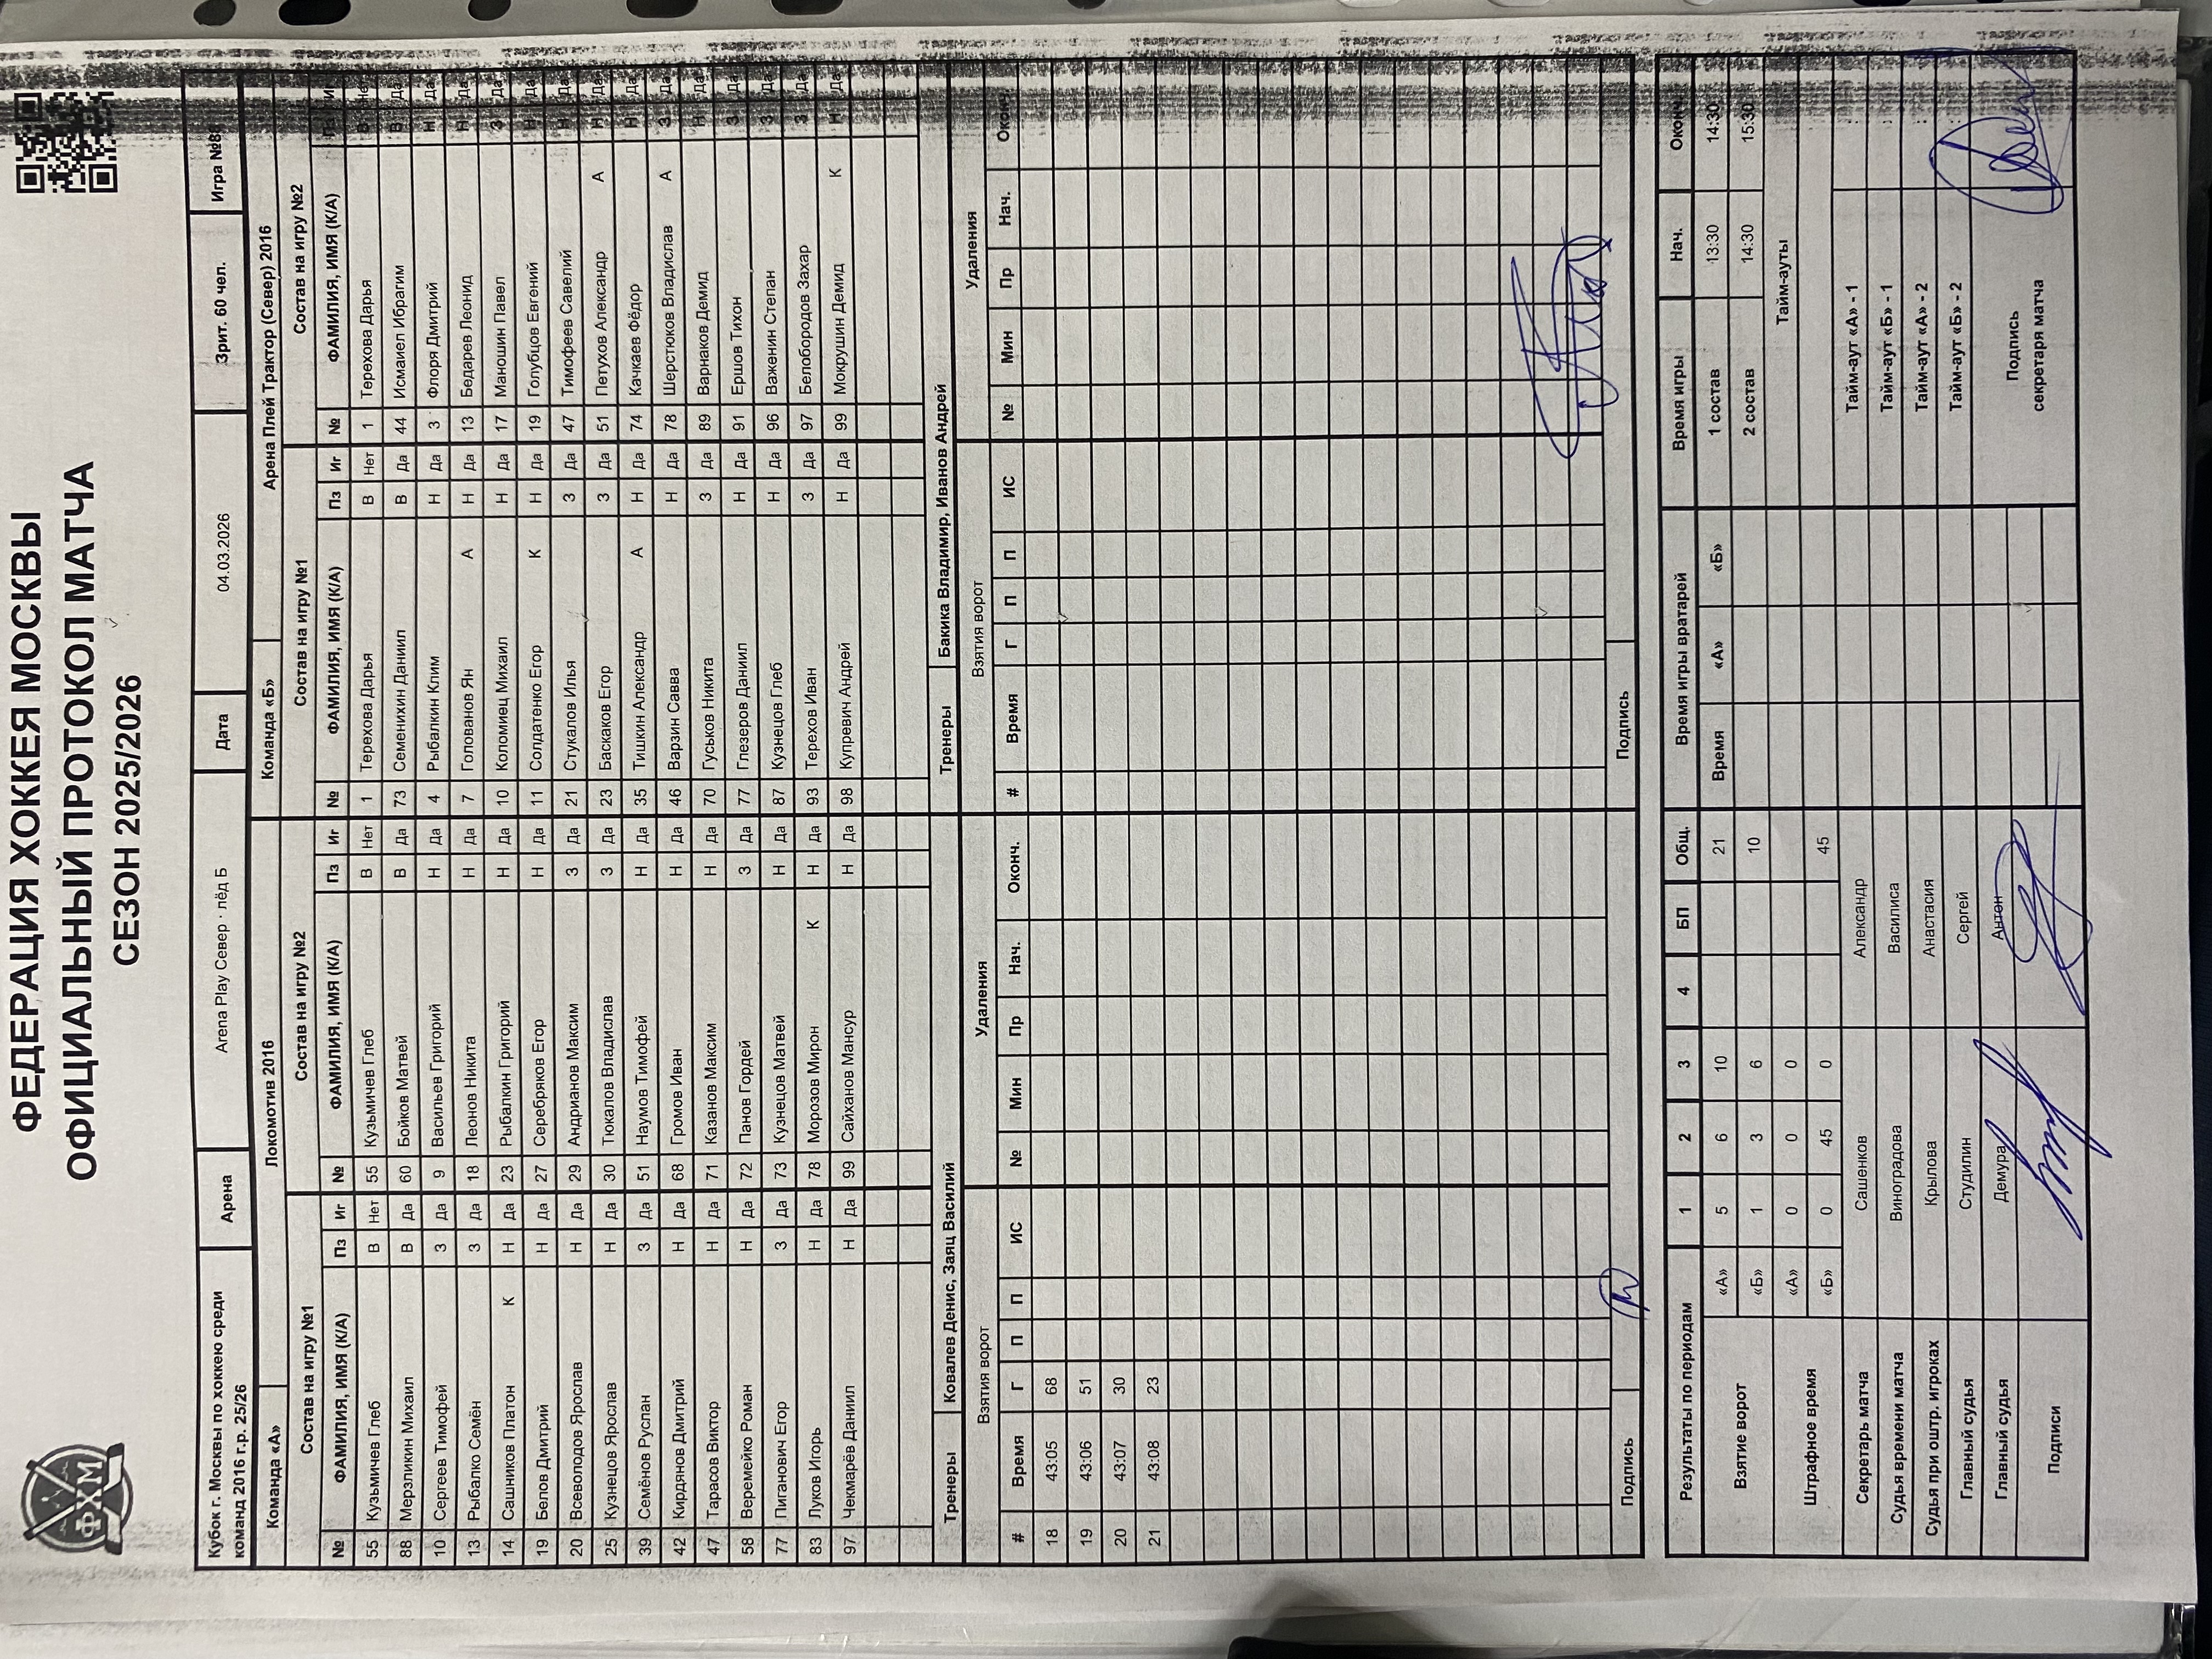 ФХМ
ФЕДЕРАЦИЯ ХОККЕЯ МОСКВЫ
ОФИЦИАЛЬНЫЙ ПРОТОКОЛ МАТЧА
СЕЗОН 2025/2026
Кубок г. Москвы по хоккею среди команд 2016 г.р. 25/26 Арена Arena Play Север · лёд Б Дата 04.03.2026 Зрит. 60 чел. Игра №8
Команда «А» Локомотив 2016 Команда «Б» Арена Плей Трактор (Север) 2016
Состав на игру №1 Состав на игру №2 Состав на игру №1 Состав на игру №2
№ ФАМИЛИЯ, ИМЯ (К/А) Пз Иг № ФАМИЛИЯ, ИМЯ (К/А) Пз Иг № ФАМИЛИЯ, ИМЯ (К/А) Пз Иг № ФАМИЛИЯ, ИМЯ (К/А) Пз И
55 Кузьмичев Глеб В Нет 55 Кузьмичев Глеб В Нет 1 Терехова Дарья В Нет 1 Терехова Дарья В Нет
88 Мерзликин Михаил В Да 60 Бойков Матвей В Да 73 Семенихин Даниил В Да 44 Исмаиел Ибрагим В Да
10 Сергеев Тимофей З Да 9 Васильев Григорий Н Да 4 Рыбалкин Клим Н Да 3 Флоря Дмитрий Н Да
13 Рыбалко Семён З Да 18 Леонов Никита Н Да 7 Голованов Ян А Н Да 13 Бедарев Леонид Н Да
14 Сашников Платон К Н Да 23 Рыбалкин Григорий Н Да 10 Коломиец Михаил Н Да 17 Маношин Павел З Да
19 Белов Дмитрий Н Да 27 Серебряков Егор Н Да 11 Солдатенко Егор К Н Да 19 Голубцов Евгений Н Да
20 Всеволодов Ярослав Н Да 29 Андрианов Максим З Да 21 Стукалов Илья З Да 47 Тимофеев Савелий Н Да
25 Кузнецов Ярослав Н Да 30 Тюкалов Владислав З Да 23 Баскаков Егор З Да 51 Петухов Александр А Н Да
39 Семёнов Руслан З Да 51 Наумов Тимофей Н Да 35 Тишкин Александр А Н Да 74 Качкаев Фёдор Н Да
42 Кирдянов Дмитрий Н Да 68 Громов Иван Н Да 46 Варзин Савва Н Да 78 Шерстюков Владислав А З Да
47 Тарасов Виктор Н Да 71 Казанов Максим Н Да 70 Гуськов Никита З Да 89 Варнаков Демид Н Да
58 Веремейко Роман Н Да 72 Панов Гордей З Да 77 Глезеров Даниил Н Да 91 Ершов Тихон З Да
77 Пиганович Егор З Да 73 Кузнецов Матвей Н Да 87 Кузнецов Глеб Н Да 96 Важенин Степан З Да
83 Луков Игорь Н Да 78 Морозов Мирон К Н Да 93 Терехов Иван З Да 97 Белобородов Захар З Да
97 Чекмарёв Даниил Н Да 99 Сайханов Мансур Н Да 98 Купревич Андрей Н Да 99 Мокрушин Демид К Н Да
Тренеры Ковалев Денис, Заяц Василий Тренеры Бакика Владимир, Иванов Андрей
Взятия ворот Удаления Взятия ворот Удаления
# Время Г П П ИС № Мин Пр Нач. Оконч. # Время Г П П ИС № Мин Пр Нач. Оконч.
18 43:05 68
19 43:06 51
20 43:07 30
21 43:08 23
Подпись Подпись
Результаты по периодам 1 2 3 4 БП Общ. Время игры вратарей Время игры Нач. Оконч.
Взятие ворот «А» 5 6 10 21 Время «А» «Б» 1 состав 13:30 14:30
«Б» 1 3 6 10 2 состав 14:30 15:30
Штрафное время «А» 0 0 0 Тайм-ауты
«Б» 0 45 0 45
Секретарь матча Сашенков Александр Тайм-аут «А» - 1
Судья времени матча Виноградова Василиса Тайм-аут «Б» - 1
Судья при оштр. игроках Крылова Анастасия Тайм-аут «А» - 2
Главный судья Студилин Сергей Тайм-аут «Б» - 2
Главный судья Демура Антон
Подписи Подпись секретаря матча